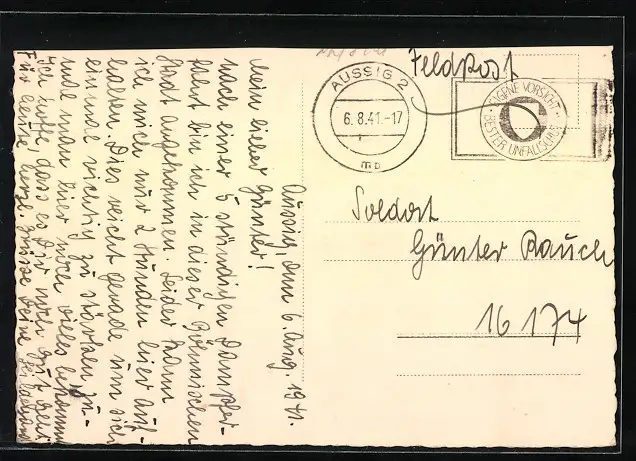 Feldpost
AUSSIG 2
6.8.41.-17
m D
EIGENE VORSICHT
BESTER UNFALLSCHUTZ
Soldat
Günter Rauch
16 174
Aussig, den 6. Aug. 1941.
Mein lieber Günter!
Nach einer 5 stündigen Dampfer-
fahrt bin ich in dieser Böhmischen
Stadt angekommen. Leider kann
ich mich nur 2 Stunden hier auf-
halten. Dies reicht gerade um sich
einmal richtig zu stärken, zu-
mal man hier noch vieles bekommt.
Ich hoffe, dass es Dir noch gut geht.
Für heute herzl. Grüsse Deine